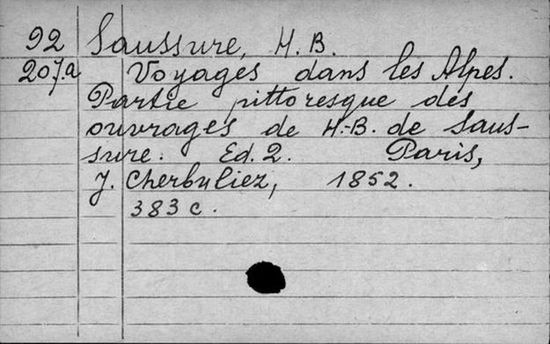 92 Saussure, H. B.
207a Voyages dans les Alpes.
Partie pittoresque des
ouvrages de H.-B. de Saus-
sure. Ed. 2. Paris,
J. Cherbuliez, 1852.
383 c.